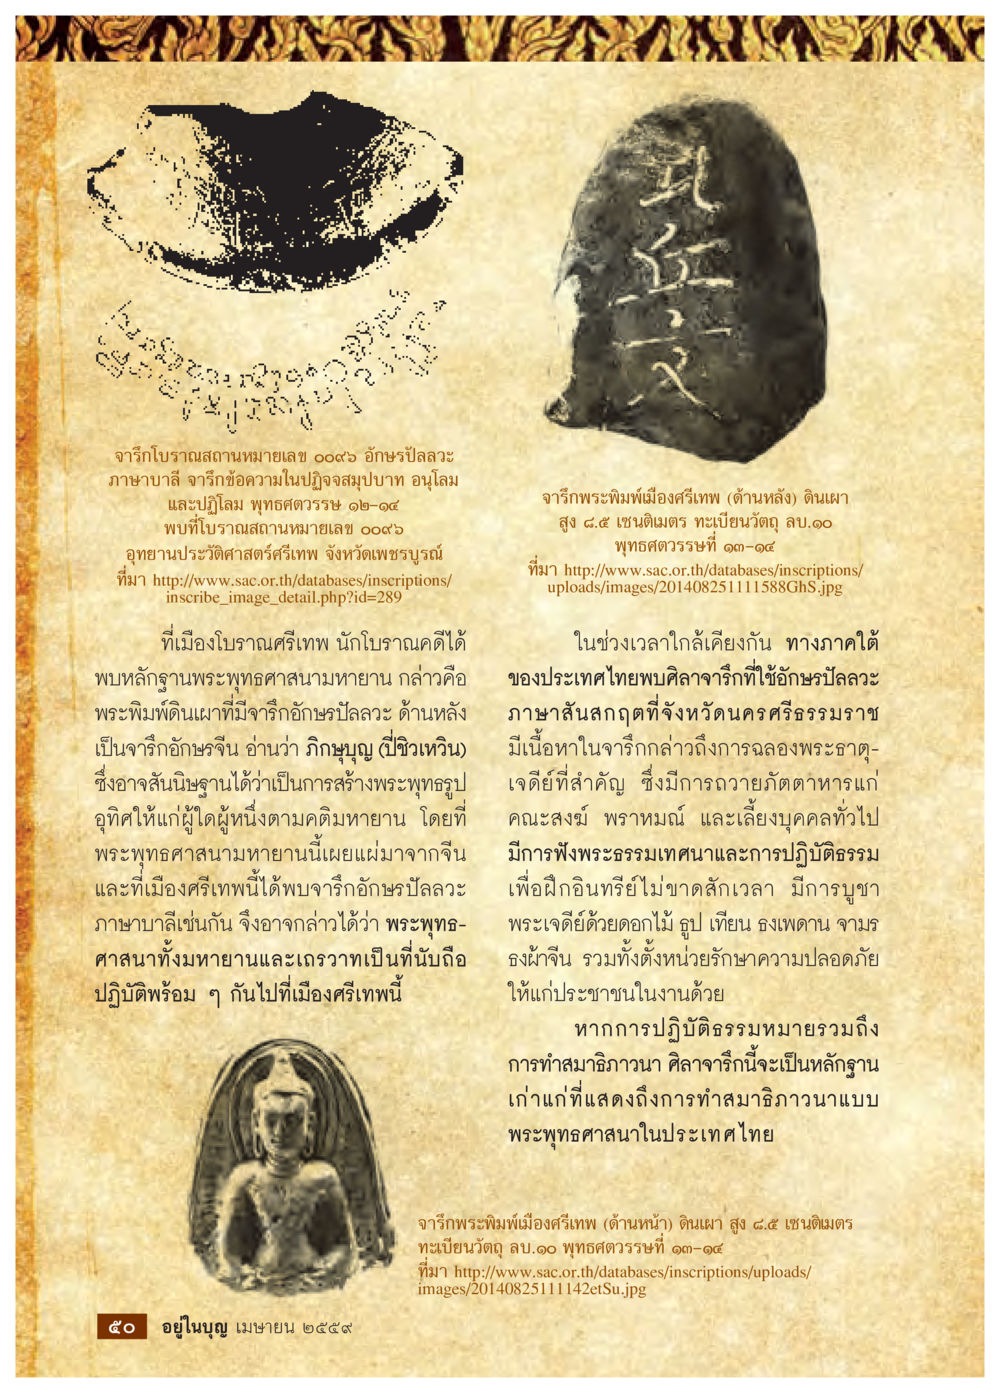 จารึกโบราณสถานหมายเลข ๐๐๙๖ อักษรปัลลวะ
ภาษาบาลี จารึกข้อความในปฏิจจสมุปบาท อนุโลม
และปฏิโลม พุทธศตวรรษ ๑๒-๑๔
พบที่โบราณสถานหมายเลข ๐๐๙๖
อุทยานประวัติศาสตร์ศรีเทพ จังหวัดเพชรบูรณ์
ที่มา http://www.sac.or.th/databases/inscriptions/
inscribe_image_detail.php?id=289
จารึกพระพิมพ์เมืองศรีเทพ (ด้านหลัง) ดินเผา
สูง ๘.๕ เซนติเมตร ทะเบียนวัตถุ ลบ.๑๐
พุทธศตวรรษที่ ๑๓-๑๔
ที่มา http://www.sac.or.th/databases/inscriptions/
uploads/images/201408251111588GhS.jpg
ที่เมืองโบราณศรีเทพ นักโบราณคดีได้
พบหลักฐานพระพุทธศาสนามหายาน กล่าวคือ
พระพิมพ์ดินเผาที่มีจารึกอักษรปัลลวะ ด้านหลัง
เป็นจารึกอักษรจีน อ่านว่า ภิกษุบุญ (ปี่ชิวเหวิน)
ซึ่งอาจสันนิษฐานได้ว่าเป็นการสร้างพระพุทธรูป
อุทิศให้แก่ผู้ใดผู้หนึ่งตามคติมหายาน โดยที่
พระพุทธศาสนามหายานนี้เผยแผ่มาจากจีน
และที่เมืองศรีเทพนี้ได้พบจารึกอักษรปัลลวะ
ภาษาบาลีเช่นกัน จึงอาจกล่าวได้ว่า พระพุทธ-
ศาสนาทั้งมหายานและเถรวาทเป็นที่นับถือ
ปฏิบัติพร้อม ๆ กันไปที่เมืองศรีเทพนี้
ในช่วงเวลาใกล้เคียงกัน ทางภาคใต้
ของประเทศไทยพบศิลาจารึกที่ใช้อักษรปัลลวะ
ภาษาสันสกฤตที่จังหวัดนครศรีธรรมราช
มีเนื้อหาในจารึกกล่าวถึงการฉลองพระธาตุ-
เจดีย์ที่สำคัญ ซึ่งมีการถวายภัตตาหารแก่
คณะสงฆ์ พราหมณ์ และเลี้ยงบุคคลทั่วไป
มีการฟังพระธรรมเทศนาและการปฏิบัติธรรม
เพื่อฝึกอินทรีย์ไม่ขาดสักเวลา มีการบูชา
พระเจดีย์ด้วยดอกไม้ ธูป เทียน ธงเพดาน จามร
ธงผ้าจีน รวมทั้งตั้งหน่วยรักษาความปลอดภัย
ให้แก่ประชาชนในงานด้วย
หากการปฏิบัติธรรมหมายรวมถึง
การทำสมาธิภาวนา ศิลาจารึกนี้จะเป็นหลักฐาน
เก่าแก่ที่แสดงถึงการทำสมาธิภาวนาแบบ
พระพุทธศาสนาในประเทศไทย
จารึกพระพิมพ์เมืองศรีเทพ (ด้านหน้า) ดินเผา สูง ๘.๕ เซนติเมตร
ทะเบียนวัตถุ ลบ.๑๐ พุทธศตวรรษที่ ๑๓-๑๔
ที่มา http://www.sac.or.th/databases/inscriptions/uploads/
images/20140825111142etSu.jpg
๕๐ อยู่ในบุญ เมษายน ๒๕๕๙